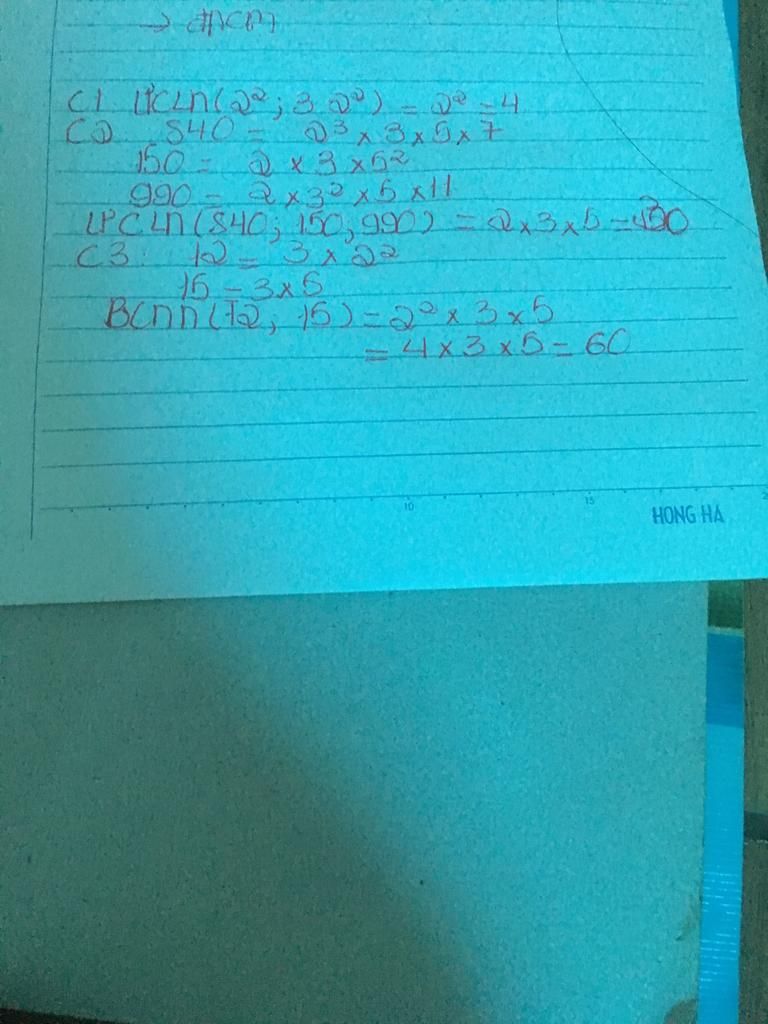 → đpcm
C1 ƯCLN(2²; 3.2²) = 2² = 4
C2 840 = 2³ × 3 × 5 × 7
150 = 2 × 3 × 5²
990 = 2 × 3² × 5 × 11
ƯCLN(840; 150; 990) = 2 × 3 × 5 = 30
C3: 12 = 3 × 2²
15 = 3 × 5
BCNN(12, 15) = 2² × 3 × 5
= 4 × 3 × 5 = 60
10 15
HONG HA